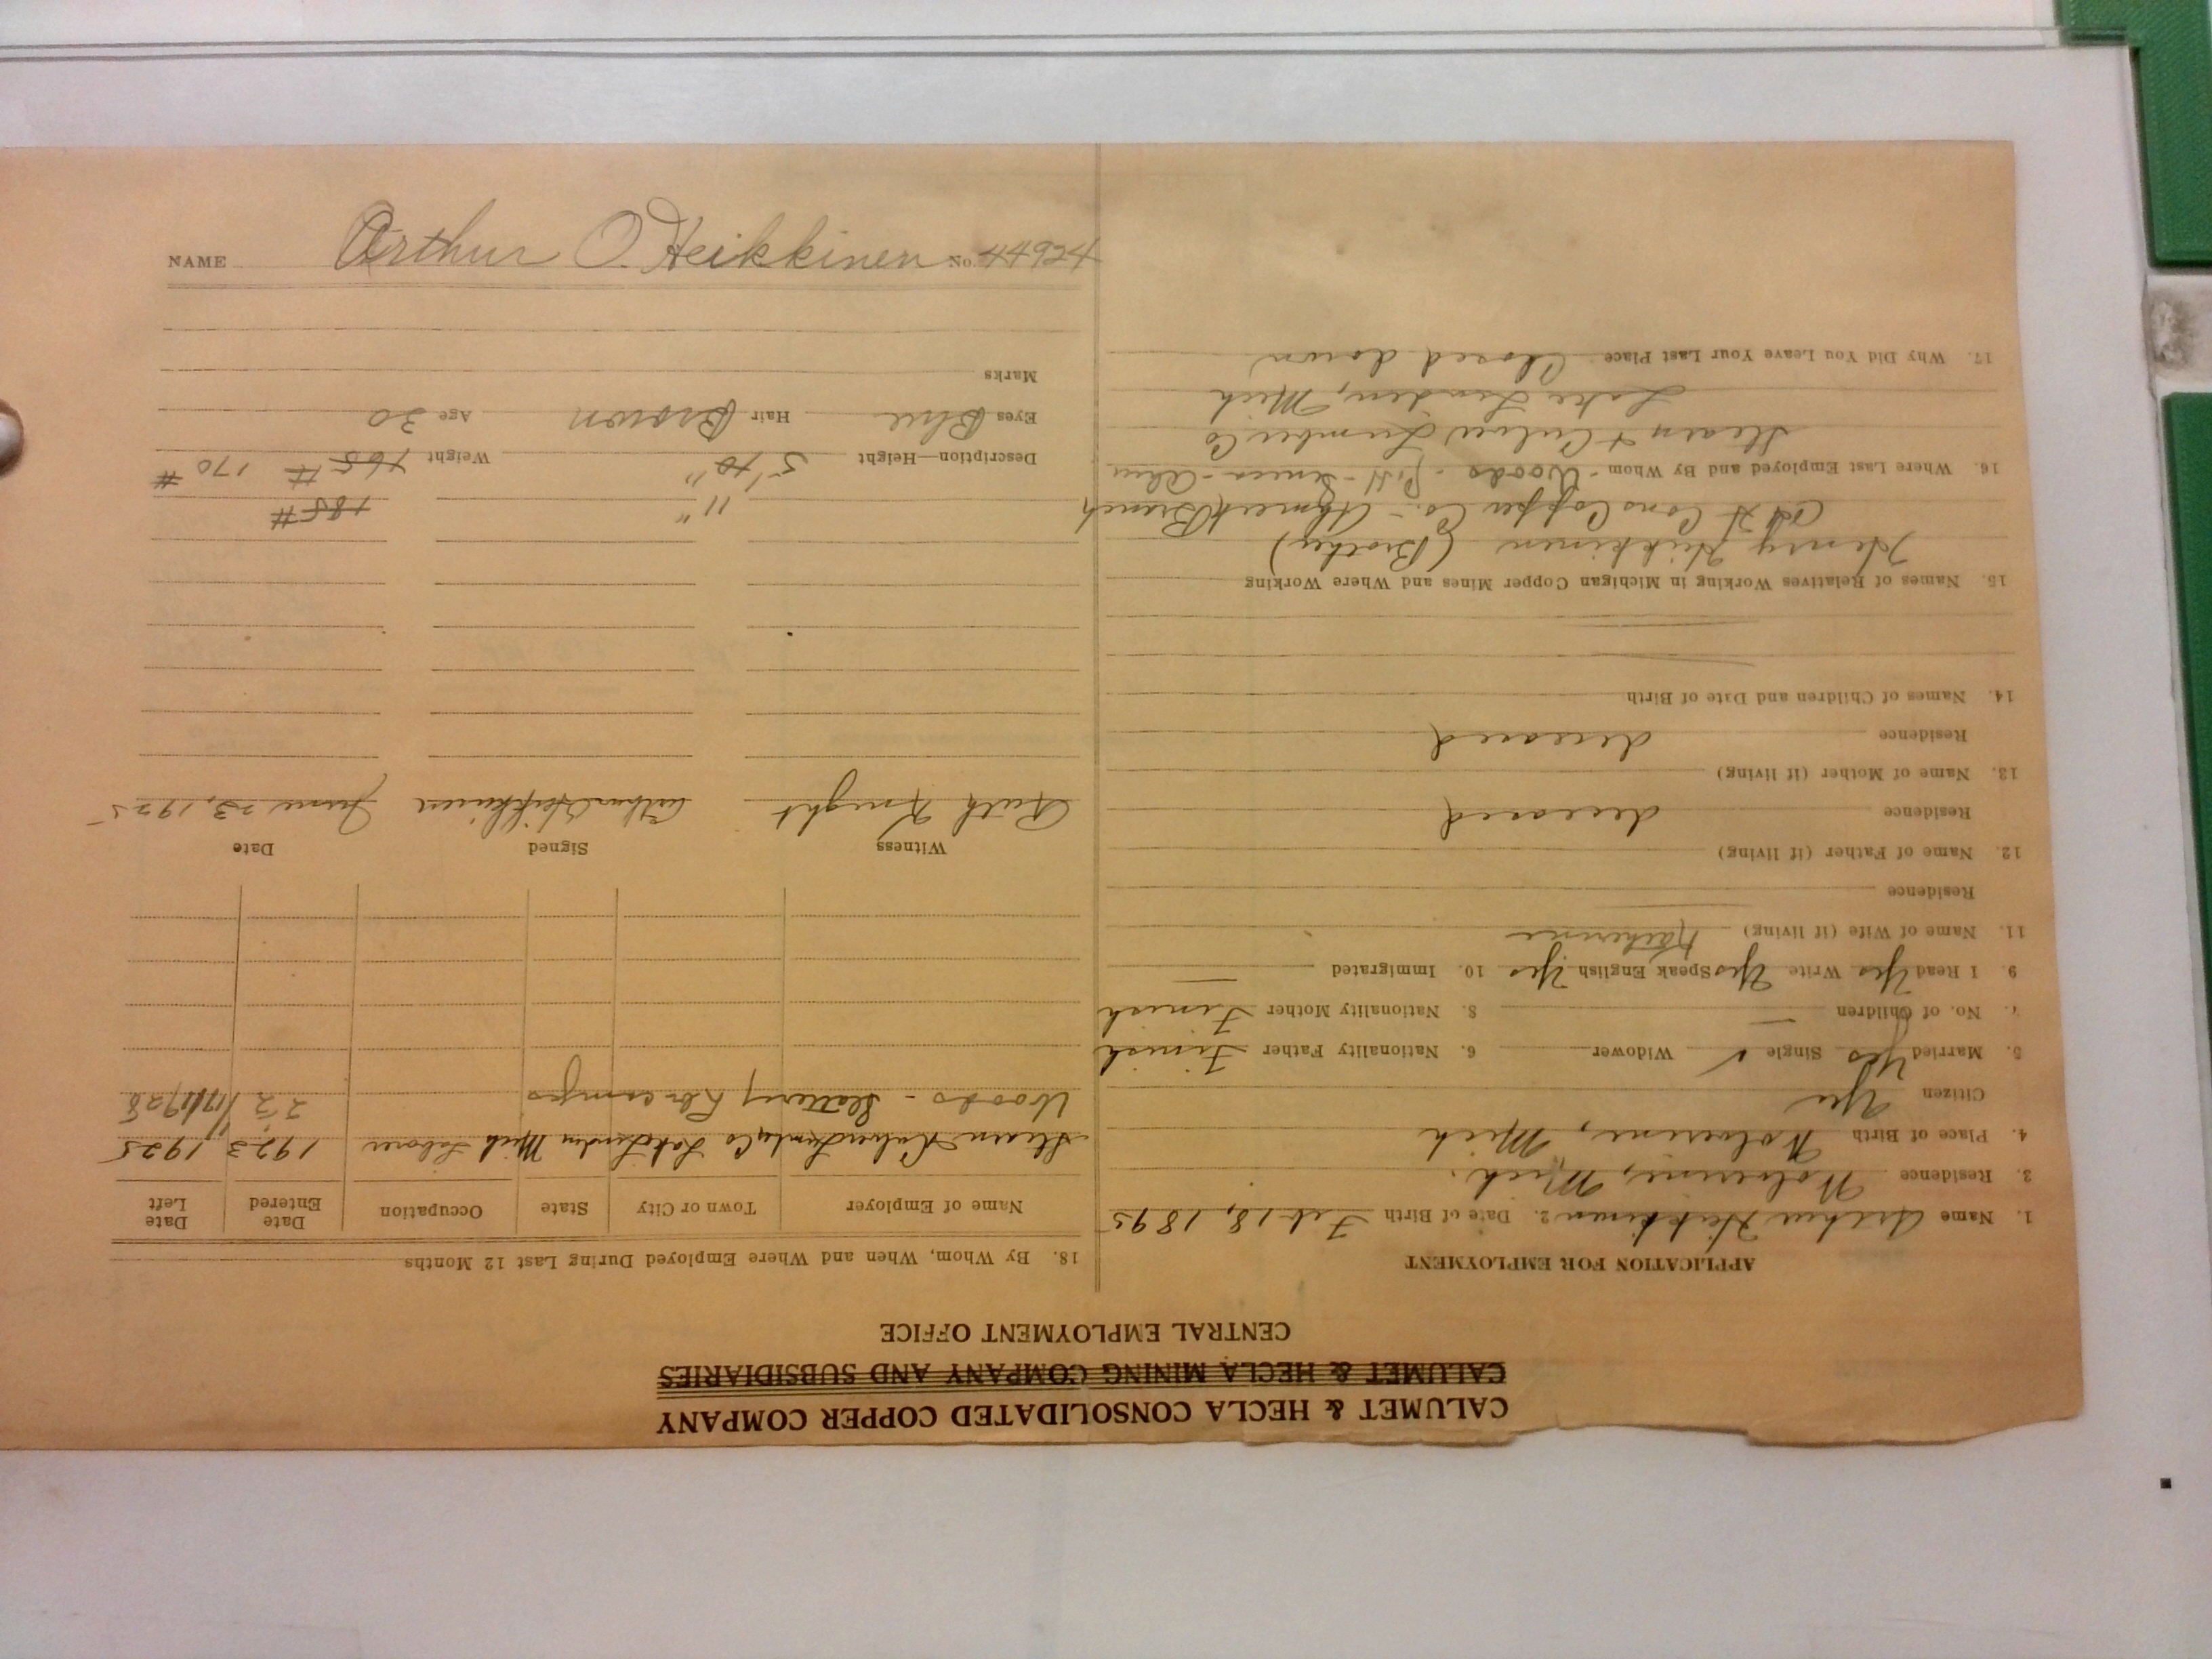 NAME Arthur O. Heikkinen No. 44924
CALUMET & HECLA CONSOLIDATED COPPER COMPANY
CALUMET & HECLA MINING COMPANY AND SUBSIDIARIES
CENTRAL EMPLOYMENT OFFICE
APPLICATION FOR EMPLOYMENT
1. Name Arthur Heikkinen 2. Date of Birth Feb 18, 1895
3. Residence Wolverine, Mich.
4. Place of Birth Wolverine, Mich
Citizen Yes
5. Married Yes Single ✓ Widower 6. Nationality Father Finish
7. No. of Children — 8. Nationality Mother Finish
9. I Read Yes Write Yes Speak English Yes 10. Immigrated —
11. Name of Wife (if living) Katherine
Residence
12. Name of Father (if living)
Residence deceased
13. Name of Mother (if living)
Residence deceased
14. Names of Children and Date of Birth
15. Names of Relatives Working in Michigan Copper Mines and Where Working
Henry Heikkinen (Brother)
C & H Cons Copper Co. - Ahmeek Branch
16. Where Last Employed and By Whom - Woods -
Lumber Co
Lake Linden, Mich
17. Why Did You Leave Your Last Place Closed down
18. By Whom, When and Where Employed During Last 12 Months
Name of Employer Town or City State Occupation Date Entered Date Left
Lake Linden Mich Laborer 1923 1925
Woods - camps
Witness Signed Date
Ruth Knight Arthur Heikkinen June 23, 1925
11" 185#
Description—Height 5' 10" Weight 165# 170#
Eyes Blue Hair Brown Age 30
Marks